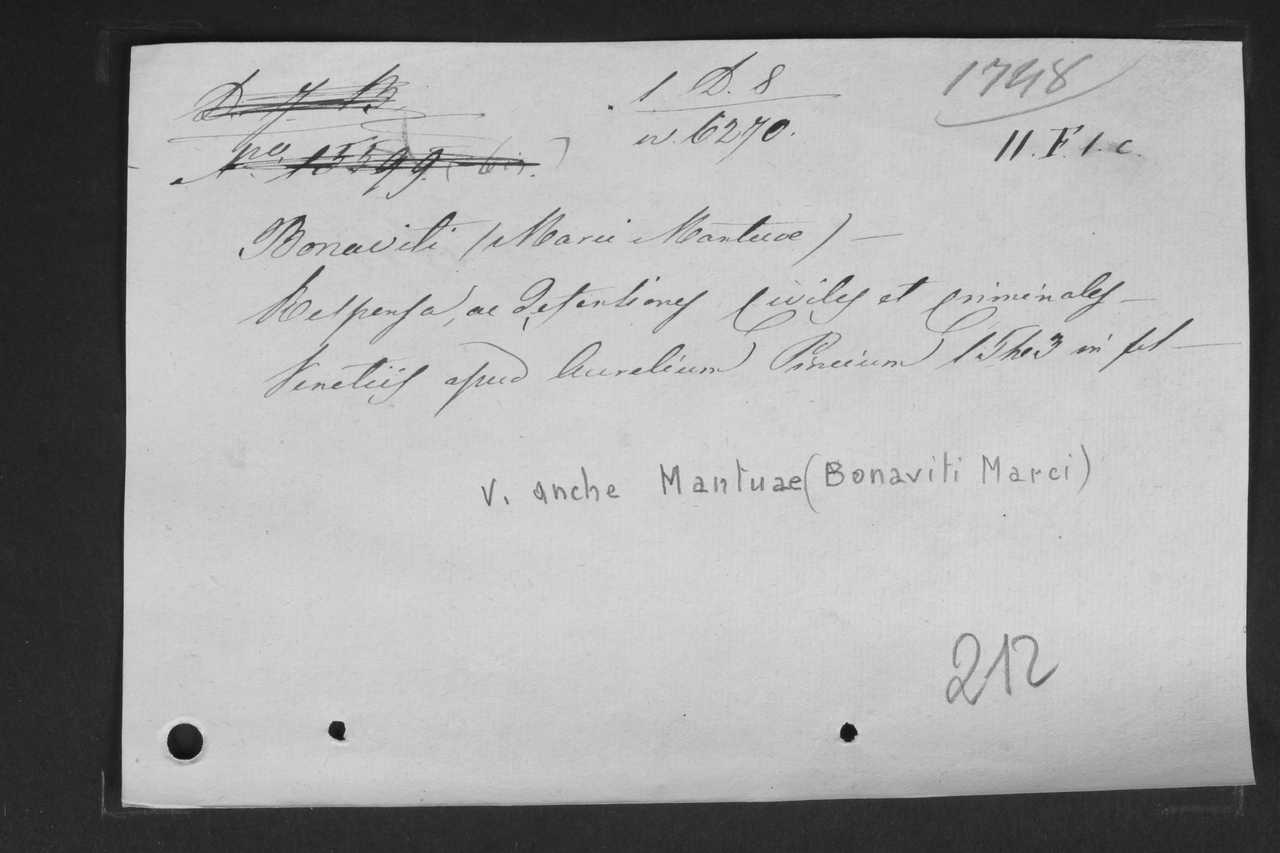 D. 7. 13 1 D. 8 1748
No. 15599 (bis.) n. 6270. II. F. 1. c.
Bonaviti (Marci Mantuae) —
Responsa, ac Defentiones Civiles et Criminales —
Venetiis apud Aurelium Pincium in fol —
V. anche Mantuae (Bonaviti Marci)
212